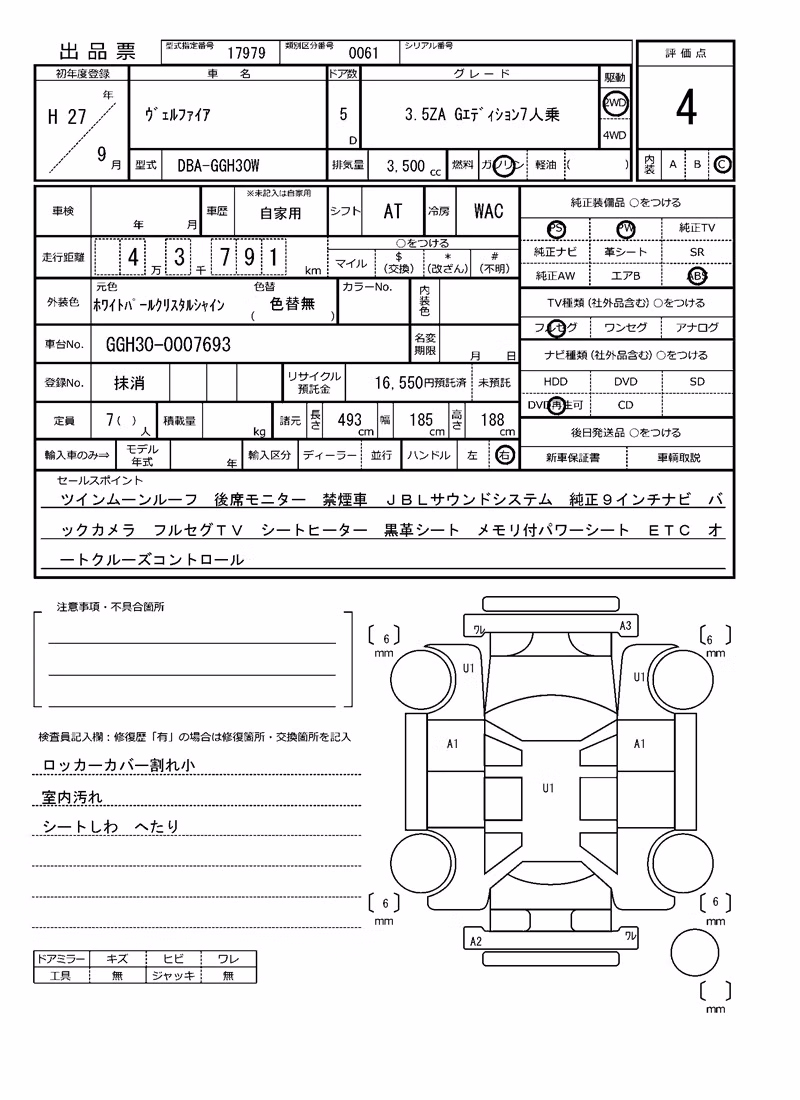 出品票 型式指定番号 17979 類別区分番号 0061 シリアル番号
初年度登録 車名 ドア数 グレード 駆動 評価点
H 27 年 9 月 ヴェルファイア 5 D 3.5ZA Gエディション7人乗 2WD 4WD 4
型式 DBA-GGH30W 排気量 3,500 cc 燃料 ガソリン 軽油 ( ) 内装 A B C
車検 年 月 車歴 ※未記入は自家用 自家用 シフト AT 冷房 WAC
走行距離 4 万 3 千 7 9 1 km ○をつける
マイル $ (交換) * (改ざん) # (不明)
外装色 元色 ホワイトパールクリスタルシャイン 色替 ( 色替無 ) カラーNo. 内装色
車台No. GGH30-0007693 名変期限 月 日
登録No. 抹消 リサイクル預託金 16,550円預託済 未預託
定員 7( ) 人 積載量 kg 諸元 長さ 493 cm 幅 185 cm 高さ 188 cm
輸入車のみ⇒ モデル年式 年 輸入区分 ディーラー 並行 ハンドル 左 右
純正装備品 ○をつける
PS PW 純正TV
純正ナビ 革シート SR
純正AW エアB ABS
TV種類(社外品含む)○をつける
フルセグ ワンセグ アナログ
ナビ種類(社外品含む)○をつける
HDD DVD SD
DVD再生可 CD
後日発送品 ○をつける
新車保証書 車輌取説
セールスポイント
ツインムーンルーフ 後席モニター 禁煙車 JBLサウンドシステム 純正9インチナビ バ
ックカメラ フルセグTV シートヒーター 黒革シート メモリ付パワーシート ETC オ
ートクルーズコントロール
注意事項・不具合箇所
検査員記入欄:修復歴「有」の場合は修復箇所・交換箇所を記入
ロッカーカバー割れ小
室内汚れ
シートしわ へたり
ドアミラー キズ ヒビ ワレ
工具 無 ジャッキ 無
ワレ A3
[ 6 ] mm [ 6 ] mm
U1 U1
A1 A1
U1
[ 6 ] mm [ 6 ] mm
A2 ワレ
[ ] mm